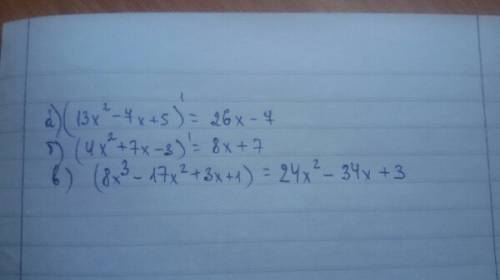 а) (13x² - 7x + 5)' = 26x - 7
б) (4x² + 7x - 3)' = 8x + 7
в) (8x³ - 17x² + 3x + 1) = 24x² - 34x + 3